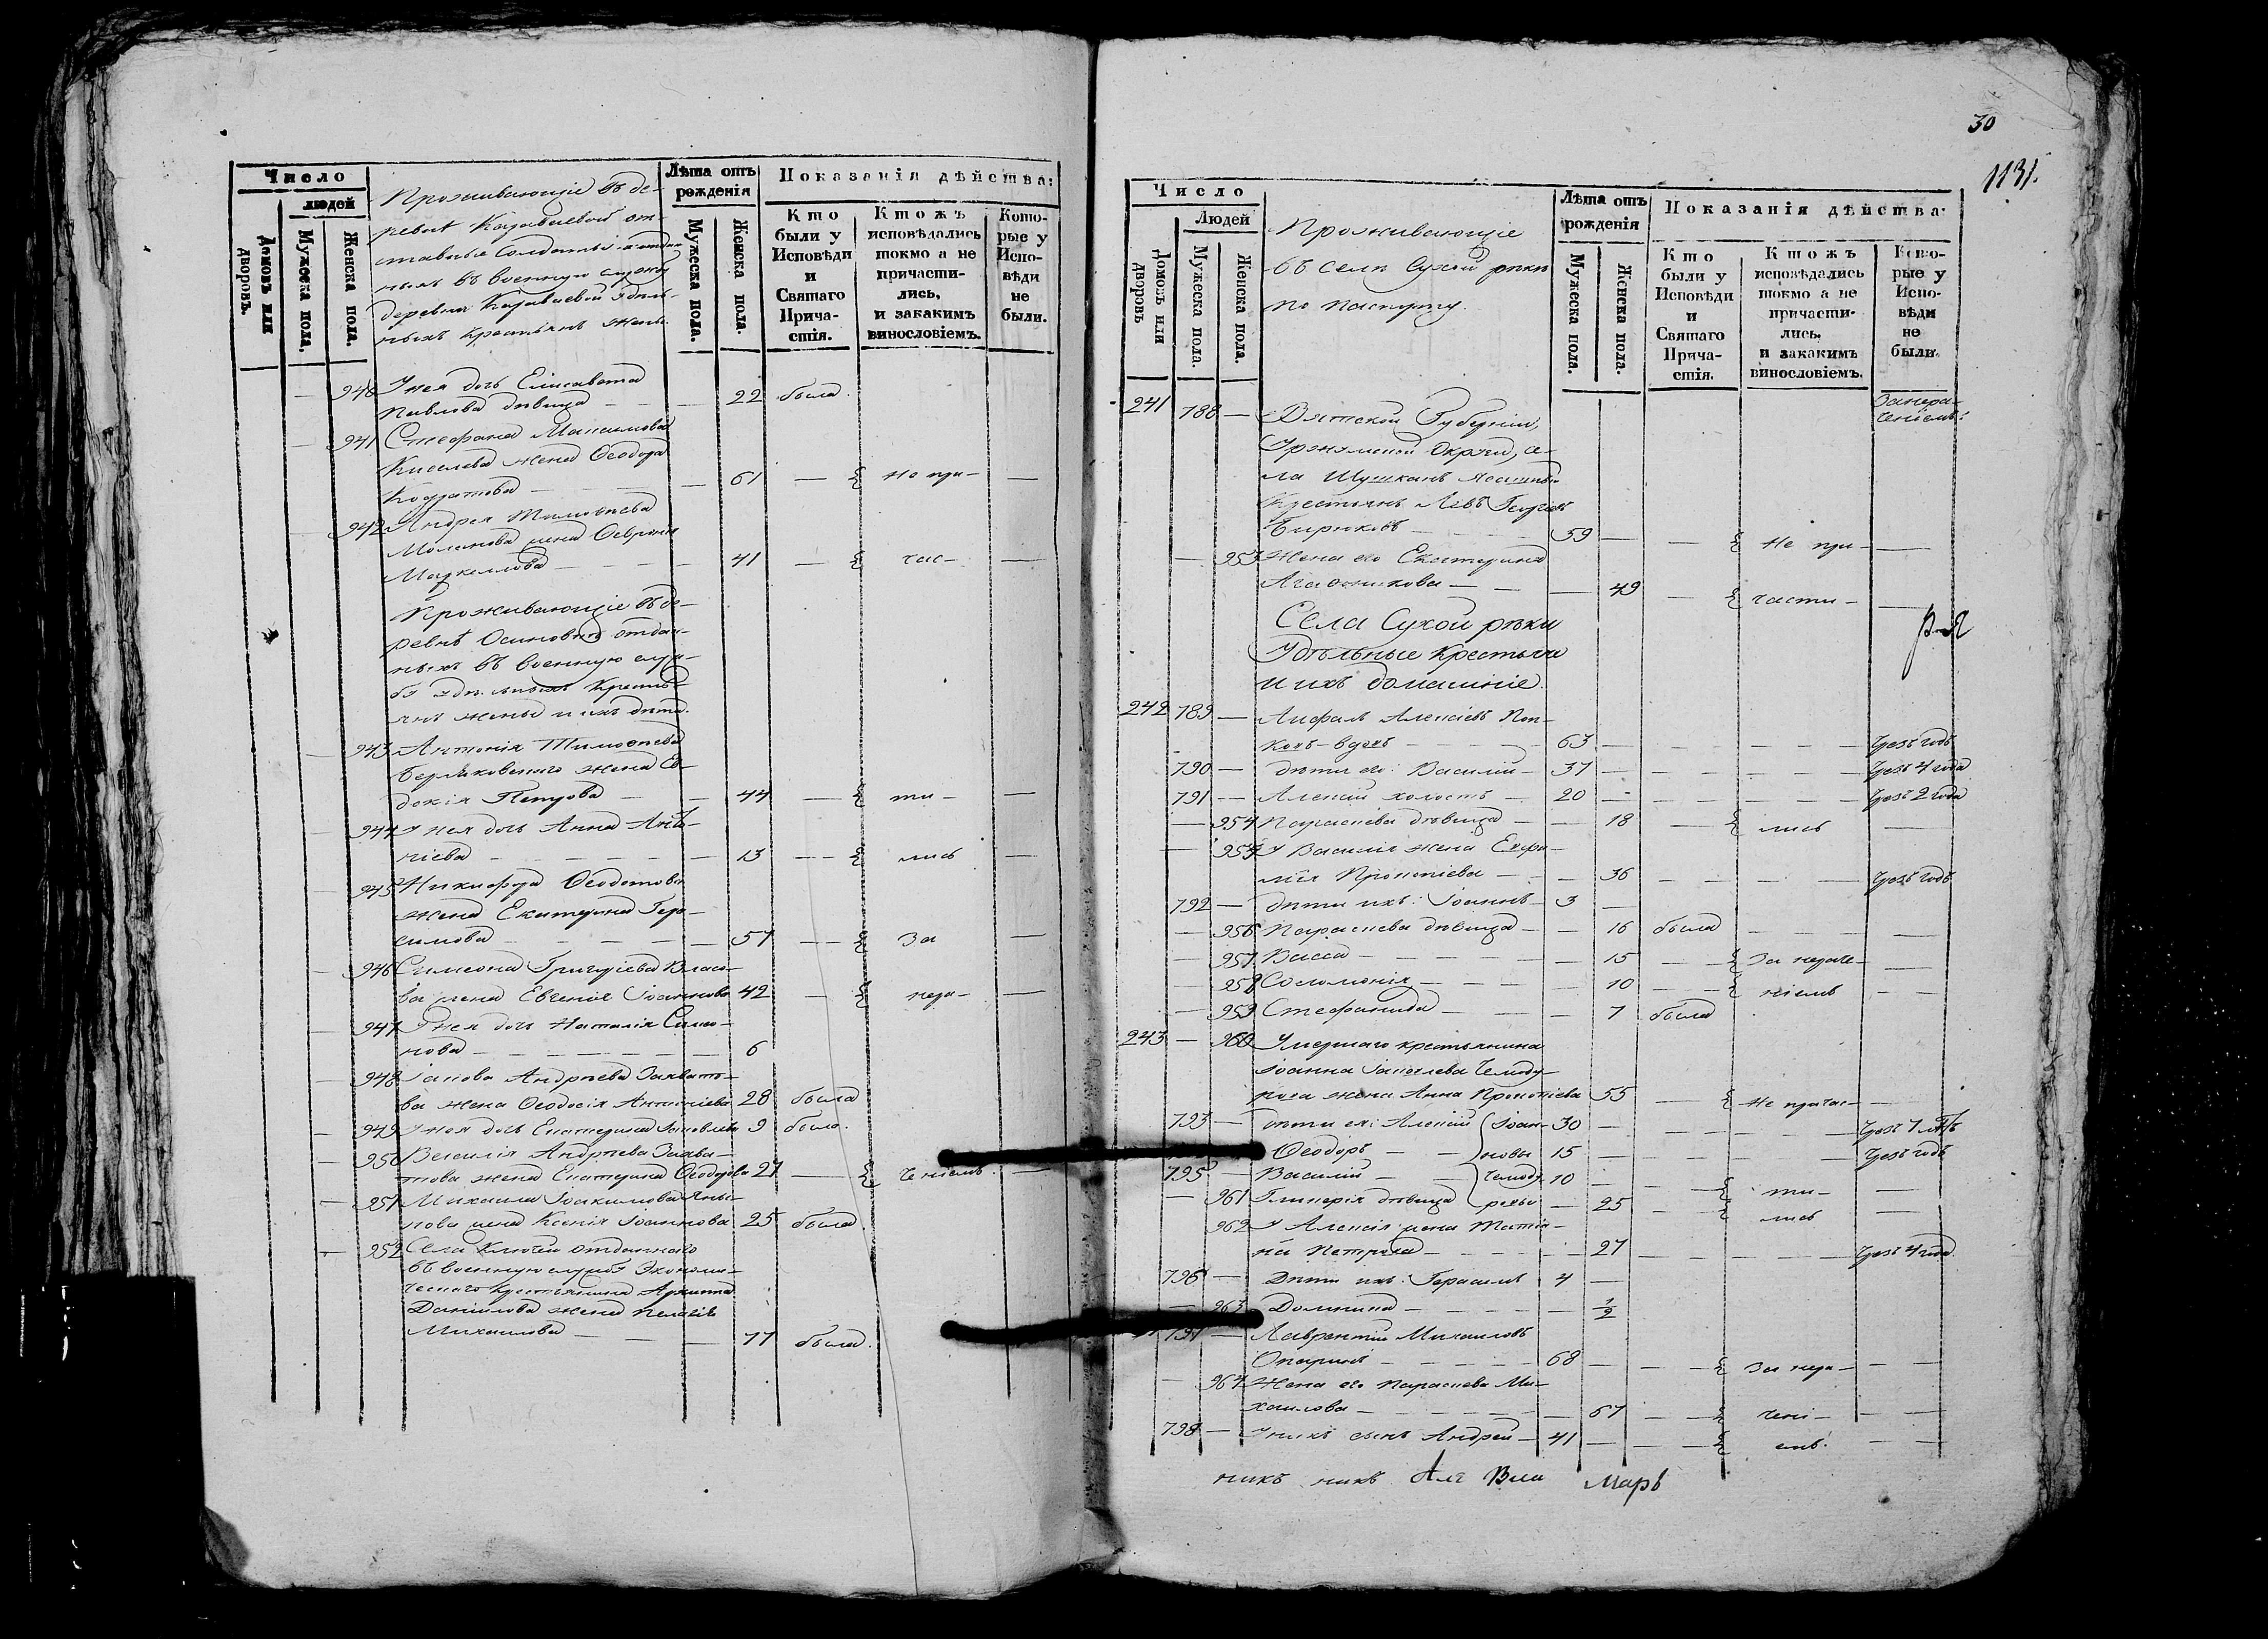 Число
людей
Домовъ или дворовъ.
Мужеска пола.
Женска пола.
Проживающіе въ де-
ревнѣ Караваевой от-
ставные Солдаты и отдан-
ныхъ въ военную службу
деревни Караваевой удѣль-
ныхъ крестьянъ жены.
Лѣта отъ рожденія
Мужеска пола.
Женска пола.
Показанія дѣйства:
Кто были у Исповѣди и Святаго Прича-стія.
Ктожъ исповѣдались токмо а не причасти-лись, и закакимъ винословіемъ.
Кото-рые у Испо-вѣди не были.
— 940 У нея дочь Елисавета
Павлова дѣвица — — 22 была.
— 941 Стефана Максимова
Киселева жена Ѳеодора
Кодратова — — 61 — Не при- —
— 942 Андрея Тимоѳеева
жена Ѳеврония
Маркеллова — — 41 — час- —
Проживающіе въ де-
ревнѣ Осиновкѣ отдан-
ныхъ въ военную служ-
бу удѣльныхъ Крестья-
янъ жены и ихъ дѣти.
— 943 Антонія Тимоѳеева
жена Ев-
докія Петрова — — 44 — ти- —
— 944 У нея дочь Анна Анто-
ніева — — 13 — лись —
— 945 Никифора Ѳеодотова
жена Екатерина Гера-
симова — — 57 — За —
— 946 Симеона Григоріева Власо-
ва жена Евгенія Іоаннова 42 — нера- —
— 947 У нея дочь Наталія Симео-
нова — — 6
— 948 Іакова Андреева Захвато-
ва жена Ѳеодосія Антоніева 28 была
— 949 У нея дочь Екатерина Іаковлева 9 была.
— 950 Василія Андреева Захва-
това жена Екатерина Ѳеодорова 27 — ченіемъ. —
— 951 Михаила Іоакимова
жена Ксенія Іоаннова 25 была.
— 952 Села Ключей отданнаго
въ военную службу Экономи-
ческаго крестьянина Архипа
Даніилова жена Пелагія
Михаилова — — 77 была.
30
1131.
Число
Людей
Домовъ или дворовъ
Мужеска пола
Женска пола.
Проживающіе
въ селѣ Сухой рѣки
по паспорту.
Лѣта отъ рожденія
Мужеска пола.
Женска пола.
Показанія дѣйства:
Кто были у Исповѣди и Святаго Прича-стія.
Ктожъ исповѣдались токмо а не причасти-лись, и закакимъ винословіемъ.
Кото-рые у Испо-вѣди не были.
Занера-
ченіемъ:
241 788 — Вятской Губерніи,
Уржумской Округи, се-
ла Шушканъ
Крестьянъ Левъ Георгіевъ
Бирюковъ — 59 — — Не при- —
— 953 Жена его Екатерина
Агаѳоникова — — 49 — части- —
Села Сухой рѣки
Удѣльные Крестьяне
и ихъ домашніе.
242 789 — Алексіевъ Поп-
ковъ-вдовъ — 63 — — Чрезъ годъ
790 — дѣти его: Василій — 37 — — Чрезъ 4 года
791 — Алексій холостъ — 20 — — Чрезъ 2 года
— 954 Параскева дѣвица — — 18 — лись —
— 955 У Василія жена Евфи-
мія Прокопіева — — 36 — — Чрезъ годъ
792 — дѣти ихъ: Іоаннъ — 3 —
— 956 Параскева дѣвица — — 16 была —
— 957 Васса — — 15 — За нераче- —
— 958 Соломонія — — 10 — ніемъ —
— 959 Стефанида — — 7 была
243 — 960 Умершаго крестьянина
Іоанна Іаковлева Чемоду-
рова жена Анна Прокопіева 55 — Не причас- —
793 — дѣти ея: Алексій Іоан- 30 — — Чрезъ 7 лѣтъ
Ѳеодоръ — новы 15 — — Чрезъ годъ
795 — Василій — Чемоду- 10 — ти- —
— 961 Гликерія дѣвица ровы — 25 — лись —
962 У Алексія жена Татія-
на Петрова — — 27 — — Чрезъ 4 года.
796 — Дѣти ихъ: Герасимъ 4 —
— 963 Домника — — 1/2
797 — Лаврентій Михаиловъ
Опаринъ — 68 — — За нера- —
— 964 Жена его Параскева Ми-
хаилова — — 67 — чені- —
798 — У нихъ сынъ Андрей — 41 — — емъ. —
никъ никъ Але Васи Марѳ